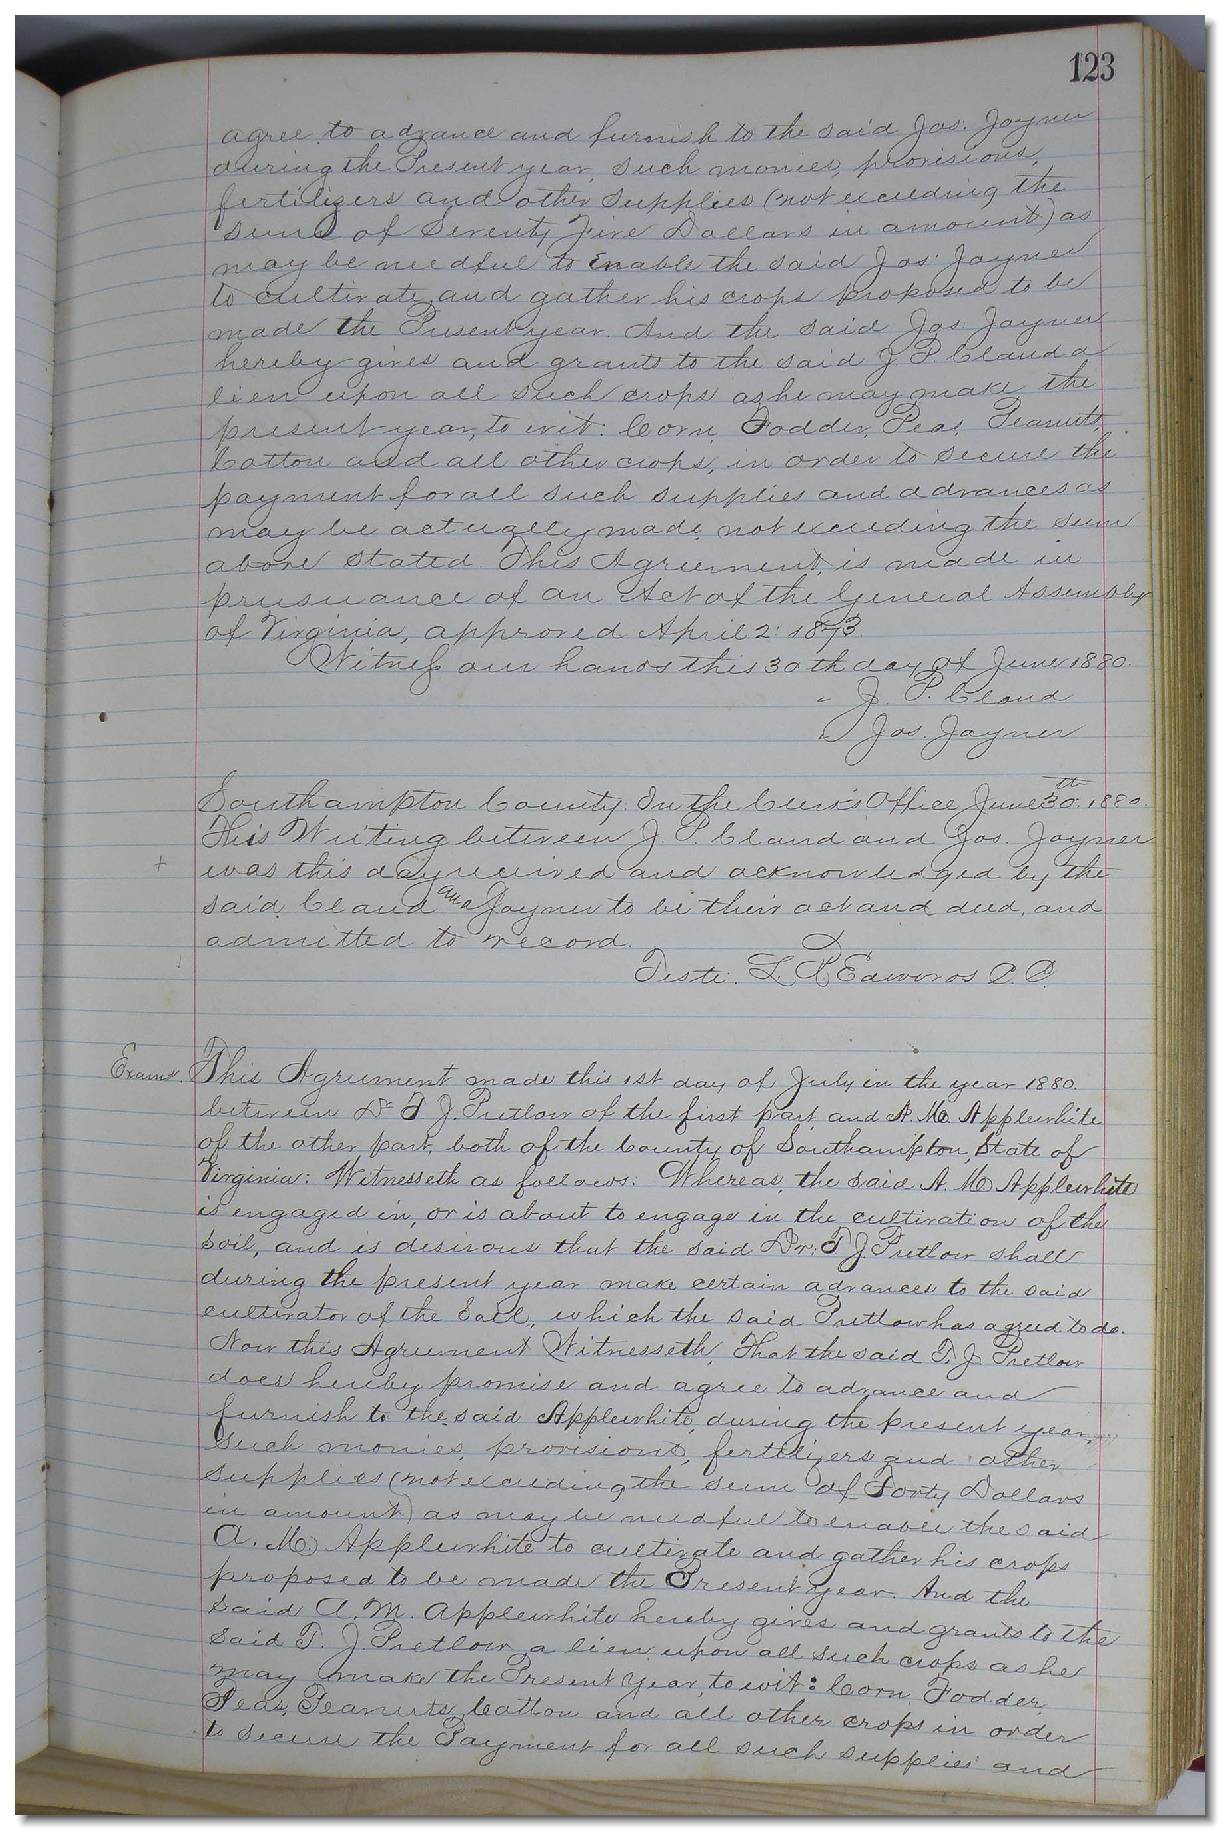 123
agree to advance and furnish to the said Jos. Joyner
during the Present year, such monies, provisions,
fertilizers and other supplies (not exceeding the
sum of Seventy Five Dollars in amount) as
may be needful to Enable the said Jos. Joyner
to cultivate and gather his crops proposed to be
made the Present year. And the said Jos. Joyner
hereby gives and grants to the said J. P. Claud a
lien upon all such crops as he may make the
present year, to wit: Corn, Fodder, Peas, Peanuts,
Cotton and all other crops, in order to secure the
payment for all such supplies and advances as
may be actually made, not exceeding the sum
above stated. This Agreement, is made in
prusuance of an Act of the General Assembly
of Virginia, approved April 2: 1873.
Witness our hands this 30th day of June 1880.
J. P. Claud
Jos. Joyner
Southampton County. In the Clerk's Office June 30th, 1880.
This Writing between J. P. Claud and Jos. Joyner
was this day received and acknowledged by the
said Claud and Joyner to be their act and deed, and
admitted to record.
Teste: L. R. Edwards C. C.
Examd. This Agreement made this 1st day of July in the year 1880.
between Dr. T. J. Pretlow of the first part and A. M. Applewhite
of the other part, both of the County of Southampton, State of
Virginia: Witnesseth as follows: Whereas, the said A. M. Applewhite
is engaged in, or is about to engage in the cultivation of the
soil, and is desirous that the said Dr. T. J. Pretlow shall
during the present year make certain advances to the said
cultivator of the Soil, which the said Pretlow has agreed to do.
Now this Agreement Witnesseth, That the said T. J. Pretlow
does hereby promise and agree to advance and
furnish to the said Applewhite, during the present year,
such monies, provisions, fertilizers and other
supplies (not exceeding the sum of Forty Dollars
in amount) as may be needful to enable the said
A. M. Applewhite to cultivate and gather his crops
proposed to be made the Present year. And the
said A. M. Applewhite hereby gives and grants to the
said T. J. Pretlow a lien upon all such crops as he
may make the Present Year, to wit: Corn, Fodder,
Peas, Peanuts, Cotton and all other crops in order
to secure the Payment for all such supplies and